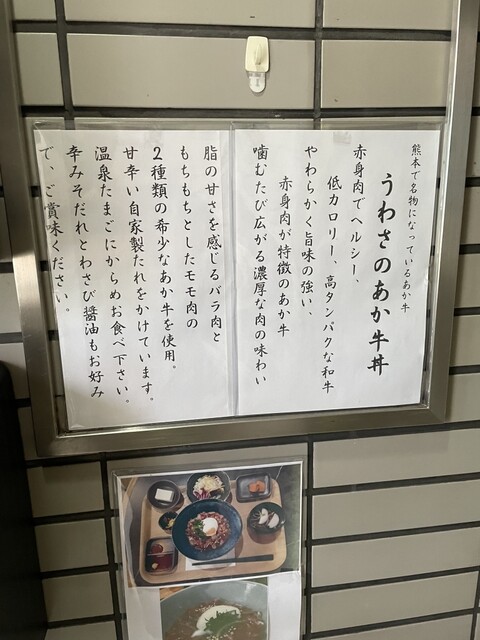 熊本で名物になっているあか牛
うわさのあか牛丼
赤身肉でヘルシー、
低カロリー、高タンパクな和牛
やわらかく旨味の強い、
赤身肉が特徴のあか牛
噛むたび広がる濃厚な肉の味わい
脂の甘さを感じるバラ肉と
もちもちとしたモモ肉の
2種類の希少なあか牛を使用。
甘辛い自家製たれをかけています。
温泉たまごにからめお食べ下さい。
辛みそだれとわさび醤油もお好み
で、ご賞味ください。